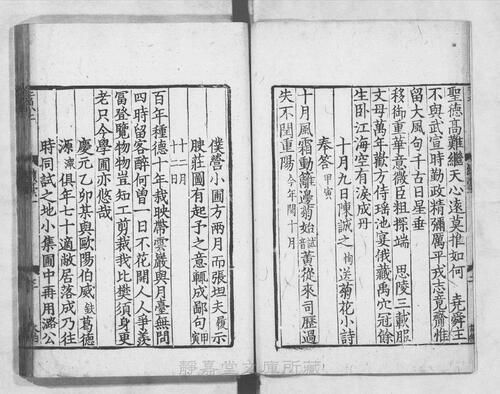 聖德高難繼天心遠莫推如何堯舜主
不與武宣時勤政精彌厲平戎志竟齎惟
留大風句千古日星垂
移御重華意微臣粗探端　思陵三載服
文母萬年歡方侍瑤池宴俄藏禹穴冠餘
生卧江海空有淚成丹
十月九日陳誠之送菊花小詩
奉答甲寅
十月風霜動籬邊菊始黃從來司歷過
失不閏重陽今年閏十月
僕營小圃方兩月而張坦夫履示
腴莊圖有起予之意輒成鄙句甲寅
廿二日
百年種德十年栽映帶雲巖與月臺無問
四時留客醉何曾一日不花開人人爭羨
富登覽物物豈知工剪裁我比樊須身更
老只今學圃亦悠哉
慶元乙卯某與歐陽伯威鈇葛德
源溁俱年七十適敝居落成乃往
時同試之地小集圃中再用潞公
靜嘉堂文庫所藏